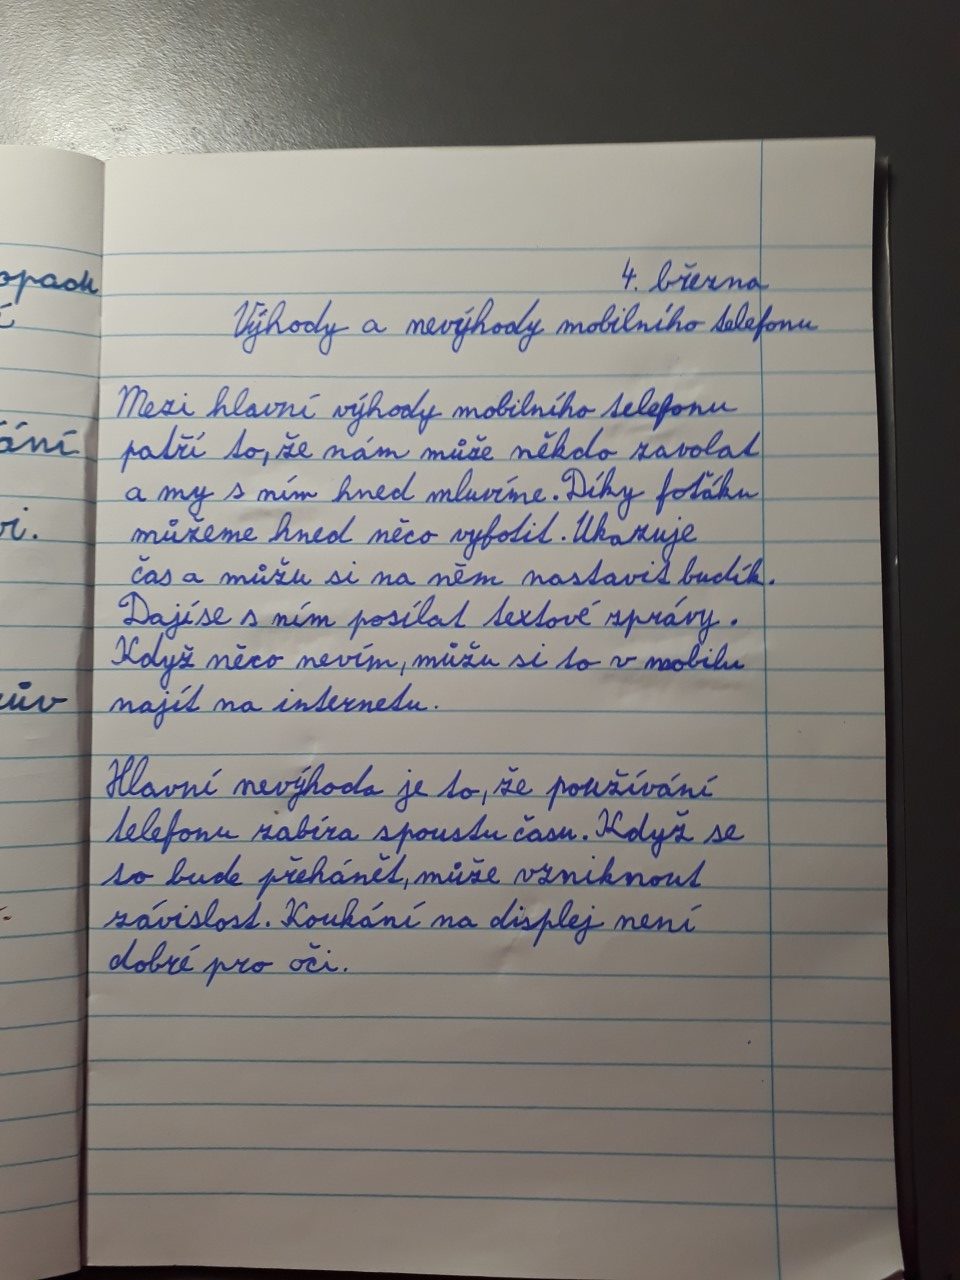 4. března
Výhody a nevýhody mobilního telefonu
Mezi hlavní výhody mobilního telefonu
patří to, že nám může někdo zavolat
a my s ním hned mluvíme. Díky foťáku
můžeme hned něco vyfotit. Ukazuje
čas a můžu si na něm nastavit budík.
Dajíse s ním posílat textové zprávy.
Když něco nevím, můžu si to v mobilu
najít na internetu.
Hlavní nevýhoda je to, že používání
telefonu zabíra spoustu času. Když se
to bude přehánět, může vzniknout
závislost. Koukání na displej není
dobré pro oči.